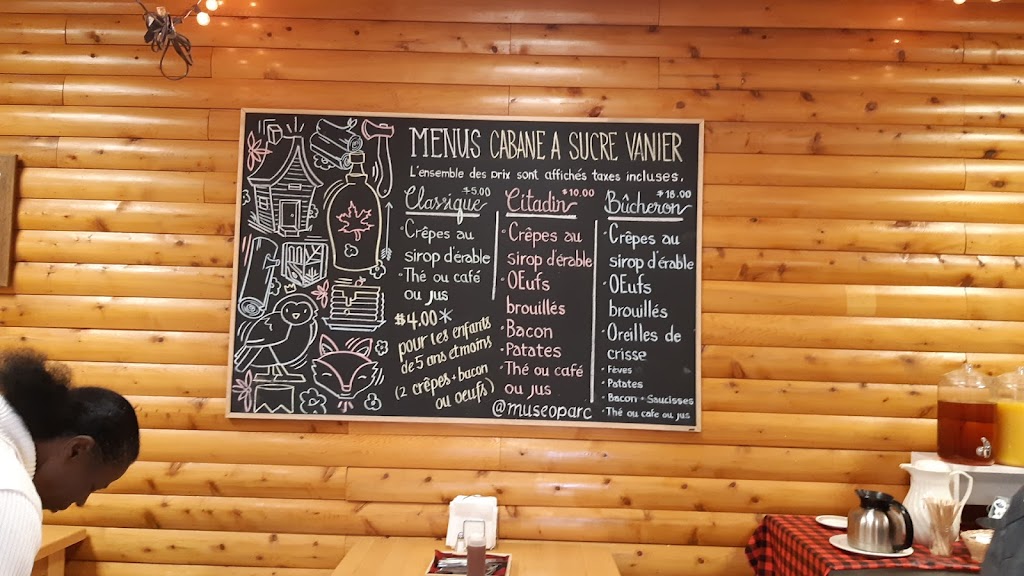 MENUS CABANE A SUCRE VANIER
L'ensemble des prix sont affichés taxes incluses.
$5.00
Classique
· Crêpes au
sirop d'érable
· Thé ou café
ou jus
$4.00*
pour les enfants
de 5 ans et moins
(2 crêpes + bacon
ou oeufs)
$10.00
Citadin
· Crêpes au
sirop d'érable
· OEufs
brouillés
· Bacon
· Patates
· Thé ou café
ou jus
$16.00
Bûcheron
· Crêpes au
sirop d'érable
· OEufs
brouillés
· Oreilles de
crisse
· Fèves
· Patates
· Bacon + Saucisses
· Thé ou cafe ou jus
@museoparc